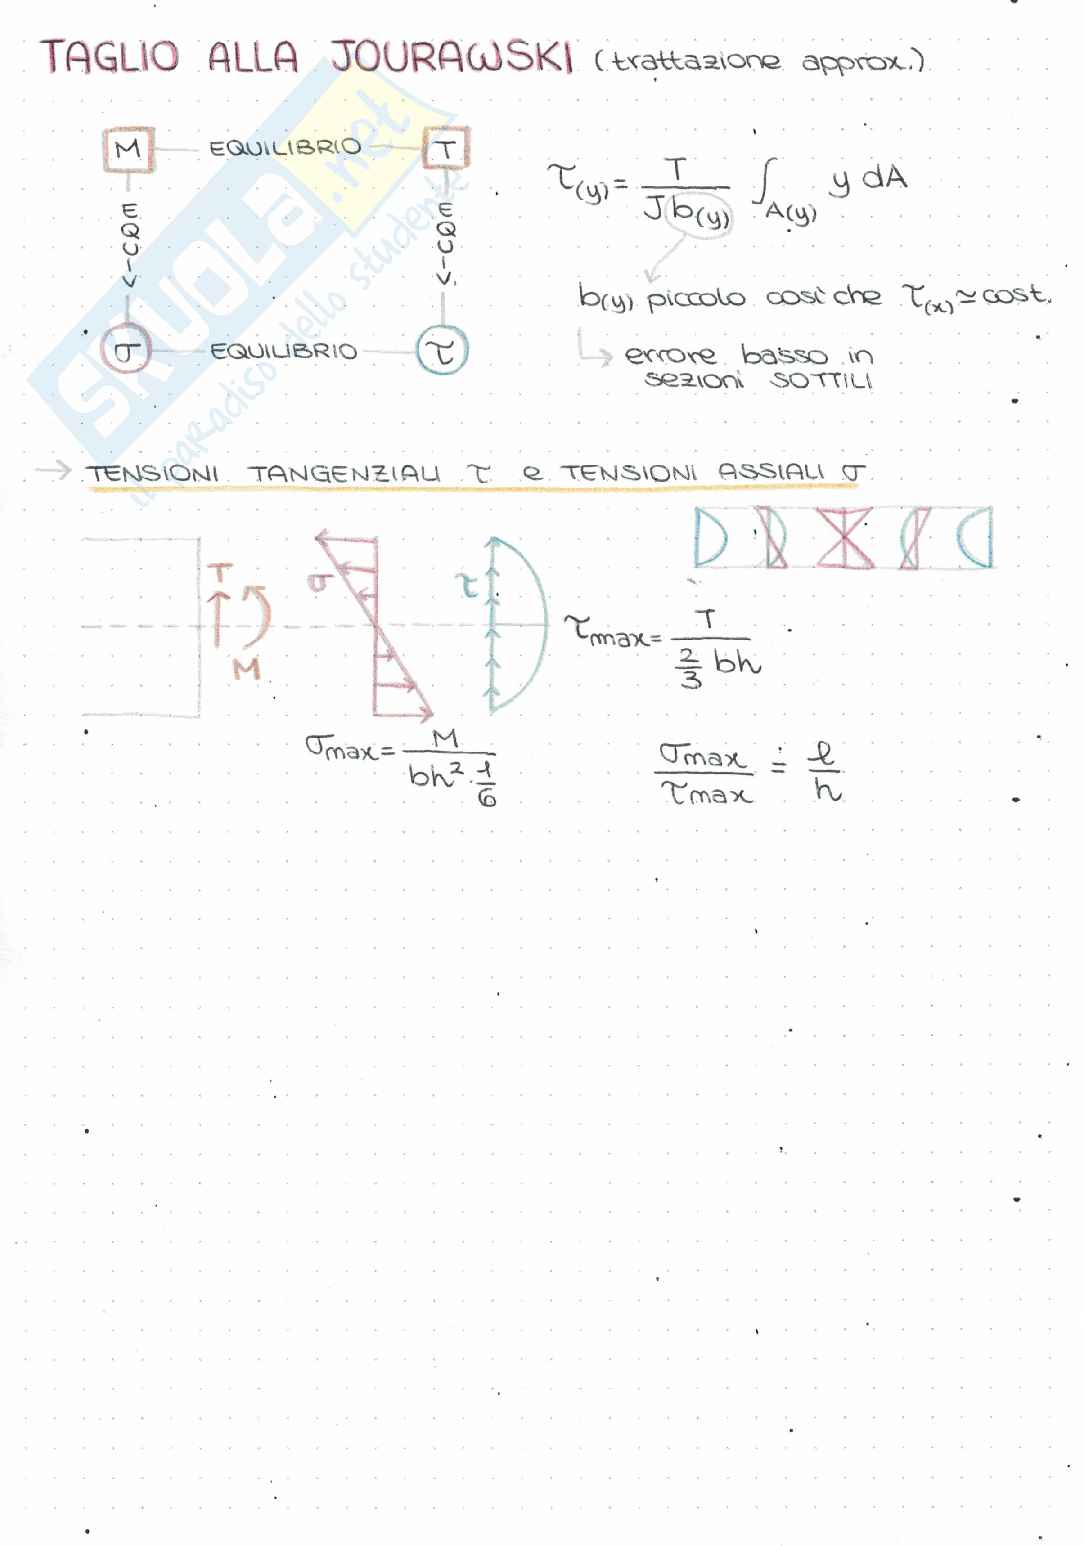 TAGLIO ALLA JOURAWSKI (trattazione approx.)
M EQUILIBRIO T
EQUIV. EQUIV.
σ EQUILIBRIO τ
τ(y) = T / J b(y) ∫A(y) y dA
b(y) piccolo così che τ(x) ≃ cost.
↳ errore basso in
sezioni SOTTILI
→ TENSIONI TANGENZIALI τ e TENSIONI ASSIALI σ
T
M
σ
τ
τmax = T / 2/3 bh
σmax = M / bh² · 1/6
σmax / τmax ≑ ℓ / h
SKUOLA.net
il paradiso dello studente